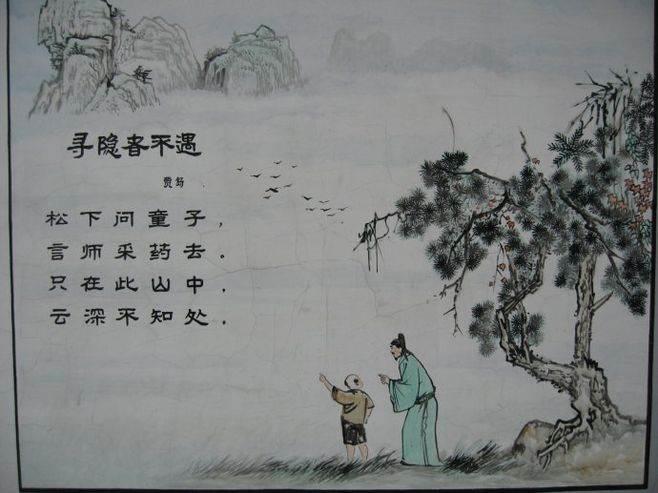 寻隐者不遇
贾岛
松下问童子，
言师采药去。
只在此山中，
云深不知处．